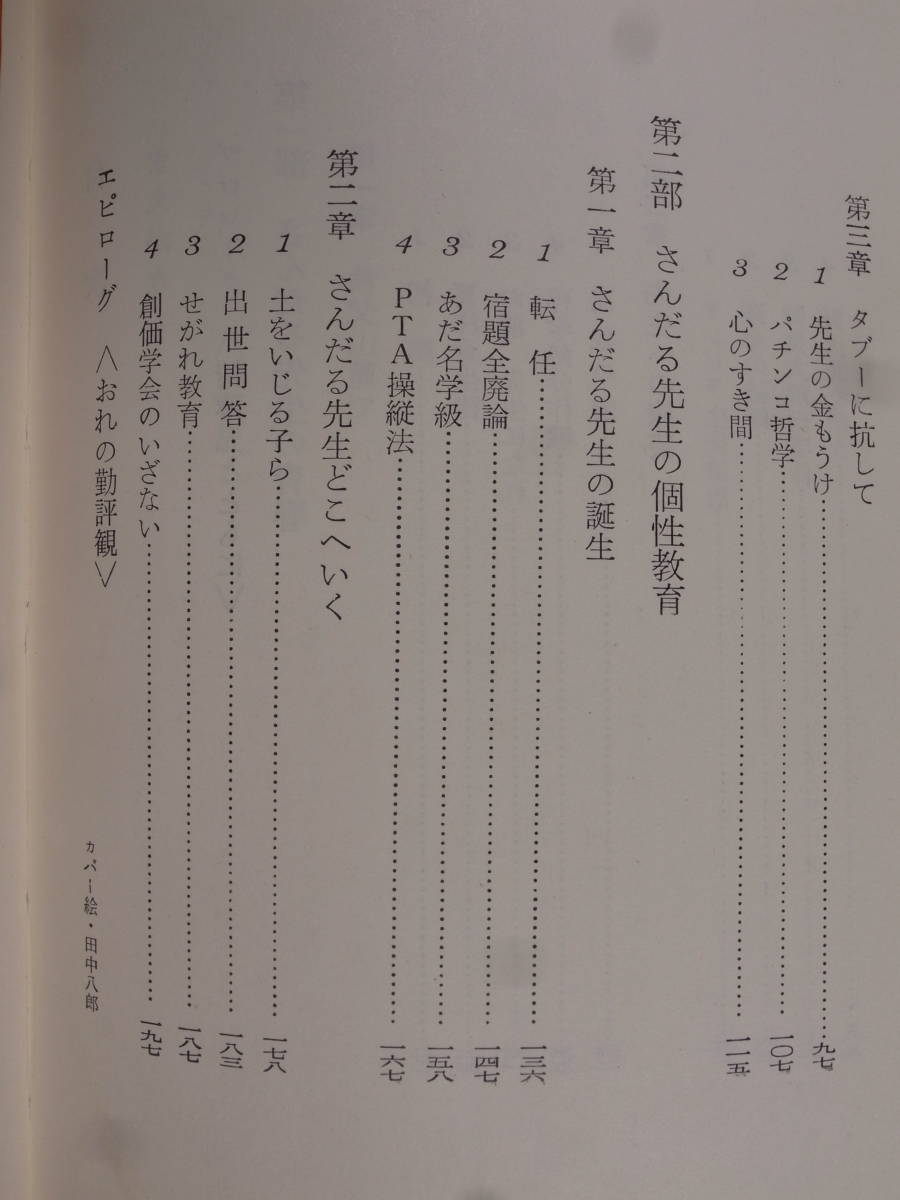 第三章　タブーに抗して
1　先生の金もうけ……………………九七
2　パチンコ哲学……………………一〇七
3　心のすき間……………………一一五
第二部　さんだる先生の個性教育
第一章　さんだる先生の誕生
1　転　任……………………一三六
2　宿題全廃論……………………一四七
3　あだ名学級……………………一五八
4　PTA操縦法……………………一六七
第二章　さんだる先生どこへいく
1　土をいじる子ら……………………一七八
2　出世問答……………………一八三
3　せがれ教育……………………一八七
4　創価学会のいざない……………………一九七
エピローグ　＜おれの勤評観＞
カバー絵・田中八郎